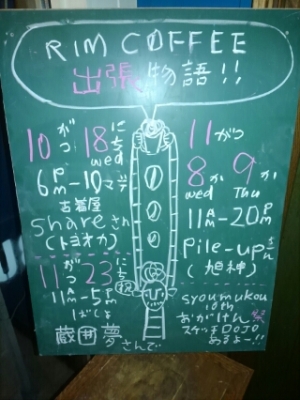 RIM COFFEE
出張物語!!
10がつ 18にち
wed
6PM-10マデ
古着屋
shareさん
(トヨオカ)
11がつ 23にち 祝
11AM-5PM
ばしょ
蔵囲夢さんで
11がつ
8か 9か
wed Thu
11AM-20PM
Pile-upさん
(旭神)
syoumukou
10th
あがけん
スケッチDOJO
あるよー!!